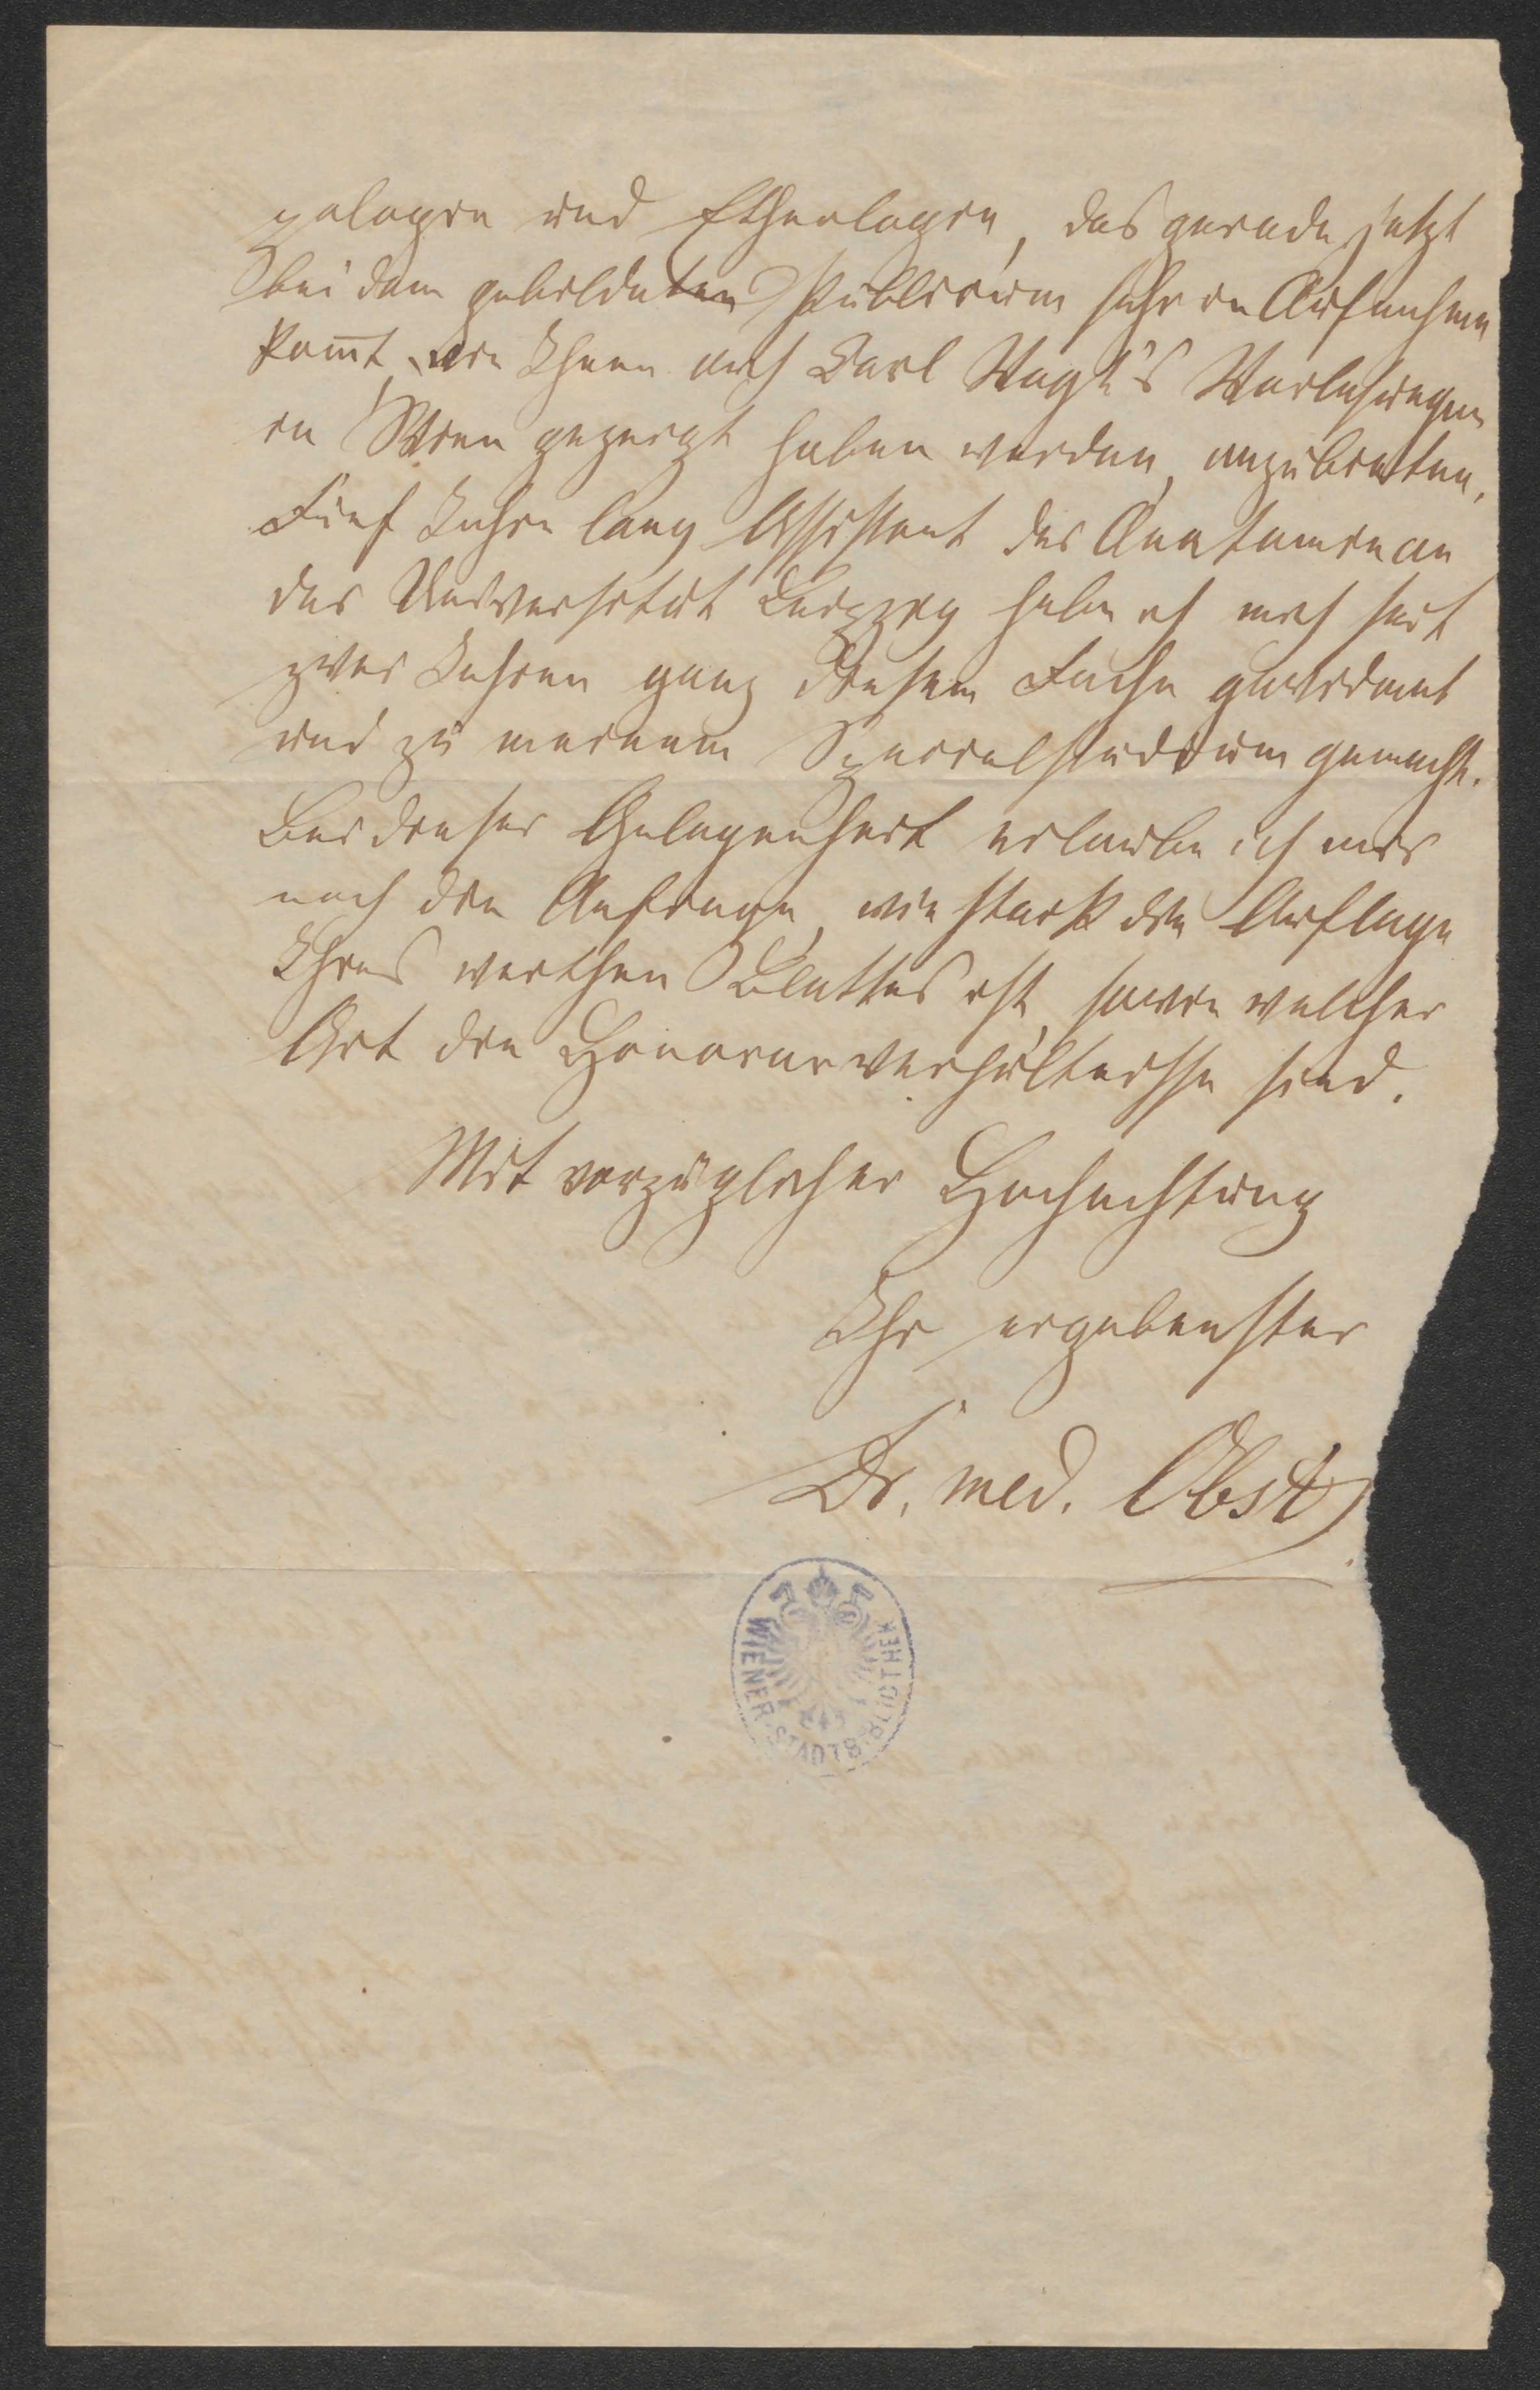 pologie und Ethnologie, das gerade jetzt
bei dem gebildeten Publicum sehr in Aufnahme
kom̅t, wie Ihnen auch Carl Vogt's Vorlesungen
in Wien gezeigt haben werden, anzubieten.
Fünf Jahre lang Assistent der Anatomie an
der Universität Leipzig habe ich mich seit
zwei Jahren ganz diesem Fache gewidmet
und zu meinem Specialstudium gemacht.
Bei dieser Gelegenheit erlaube ich mir
noch die Anfrage, wie stark die Auflage
Ihres werthen Blattes ist, sowie welcher
Art die Honorarverhältnisse sind.
Mit vorzüglicher Hochachtung
Ihr ergebenster
Dr. med. Obst
WIENER STADTBIBLIOTHEK